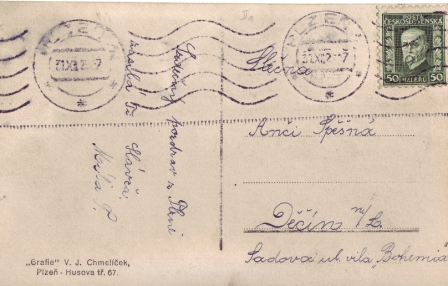 PLZEŇ
31.XII.2 -7
PLZEŇ
31.XII.2 -7
ČESKOSLOVENSKÁ
50 HALÉŘŮ 50
Srdečný pozdrav z Plzně
zasílá Vá
Slávča.
Slečna
Anči Spěšná
Děčín n/L.
Sadová ul. vila „Bohemia"
„Grafie" V. J. Chmelíček,
Plzeň - Husova tř. 67.